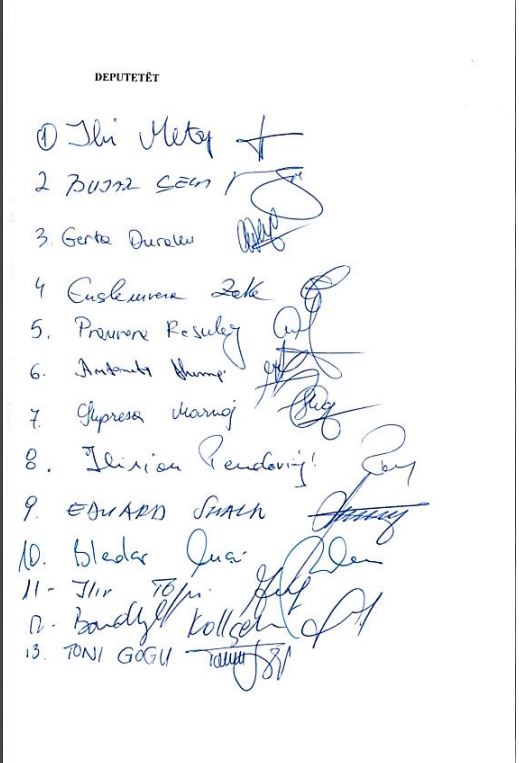 DEPUTETËT
1 Ilir Metaj
2 BUJAR ÇELA
3. Gerta Duraku
4 Englemvera Zake
5. Pranvera Resulaj
6. Antoneta Dhima
7. Shpresa Marnoj
8. Ilirian Pendavinji
9. EDUARD SHALSI
10. Bledar Çuçi
11- Ilir Topi
12. Kollçaku
13. TONI GOGU